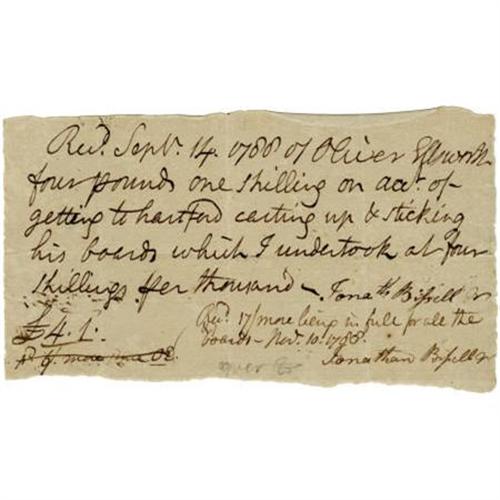 Recd. Septr. 14. 1788 of Oliver Ellsworth
four pounds one shilling on acct. of
getting to hartford carting up & sticking
his boards which I undertook at four
shillings per thousand — Jonath Bissell Jr
£4.1.
Recd. 17/ more being in full for all the
boards — Novr. 10. 1788.
Jonathan Bissell Jr